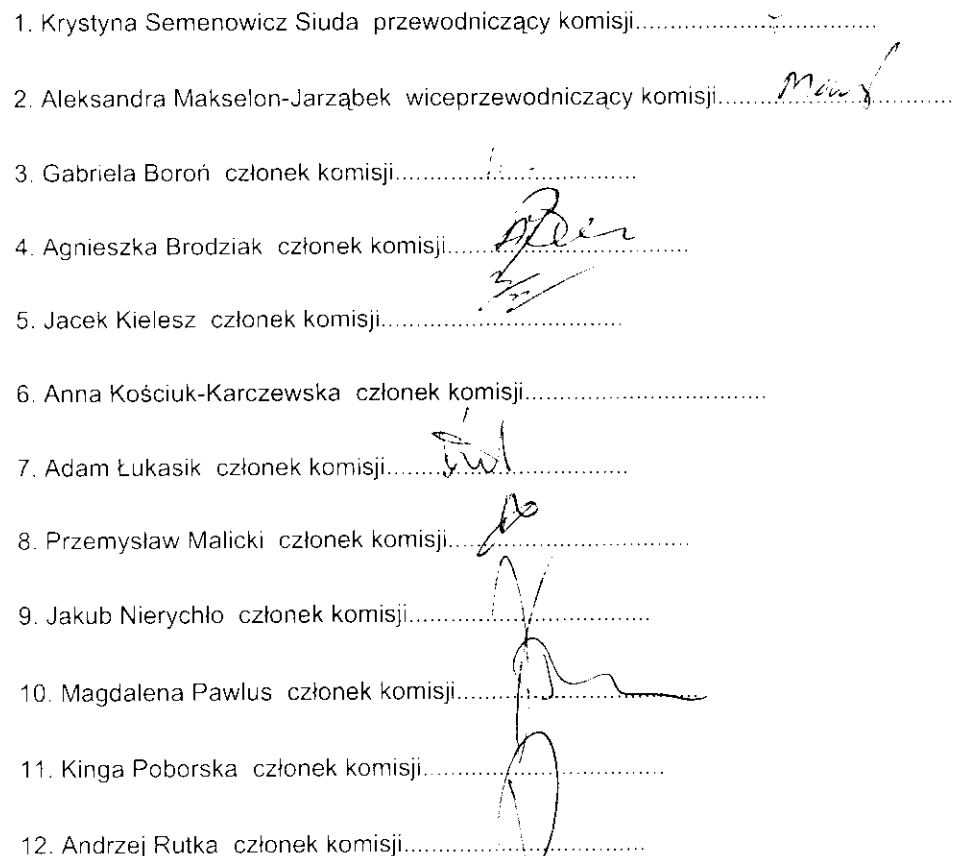 1. Krystyna Semenowicz Siuda przewodniczący komisji..................................
2. Aleksandra Makselon-Jarząbek wiceprzewodniczący komisji..................................
3. Gabriela Boroń członek komisji..................................
4. Agnieszka Brodziak członek komisji..................................
5. Jacek Kielesz członek komisji..................................
6. Anna Kościuk-Karczewska członek komisji..................................
7. Adam Łukasik członek komisji..................................
8. Przemysław Malicki członek komisji..................................
9. Jakub Nierychło członek komisji..................................
10. Magdalena Pawlus członek komisji..................................
11. Kinga Poborska członek komisji..................................
12. Andrzej Rutka członek komisji..................................